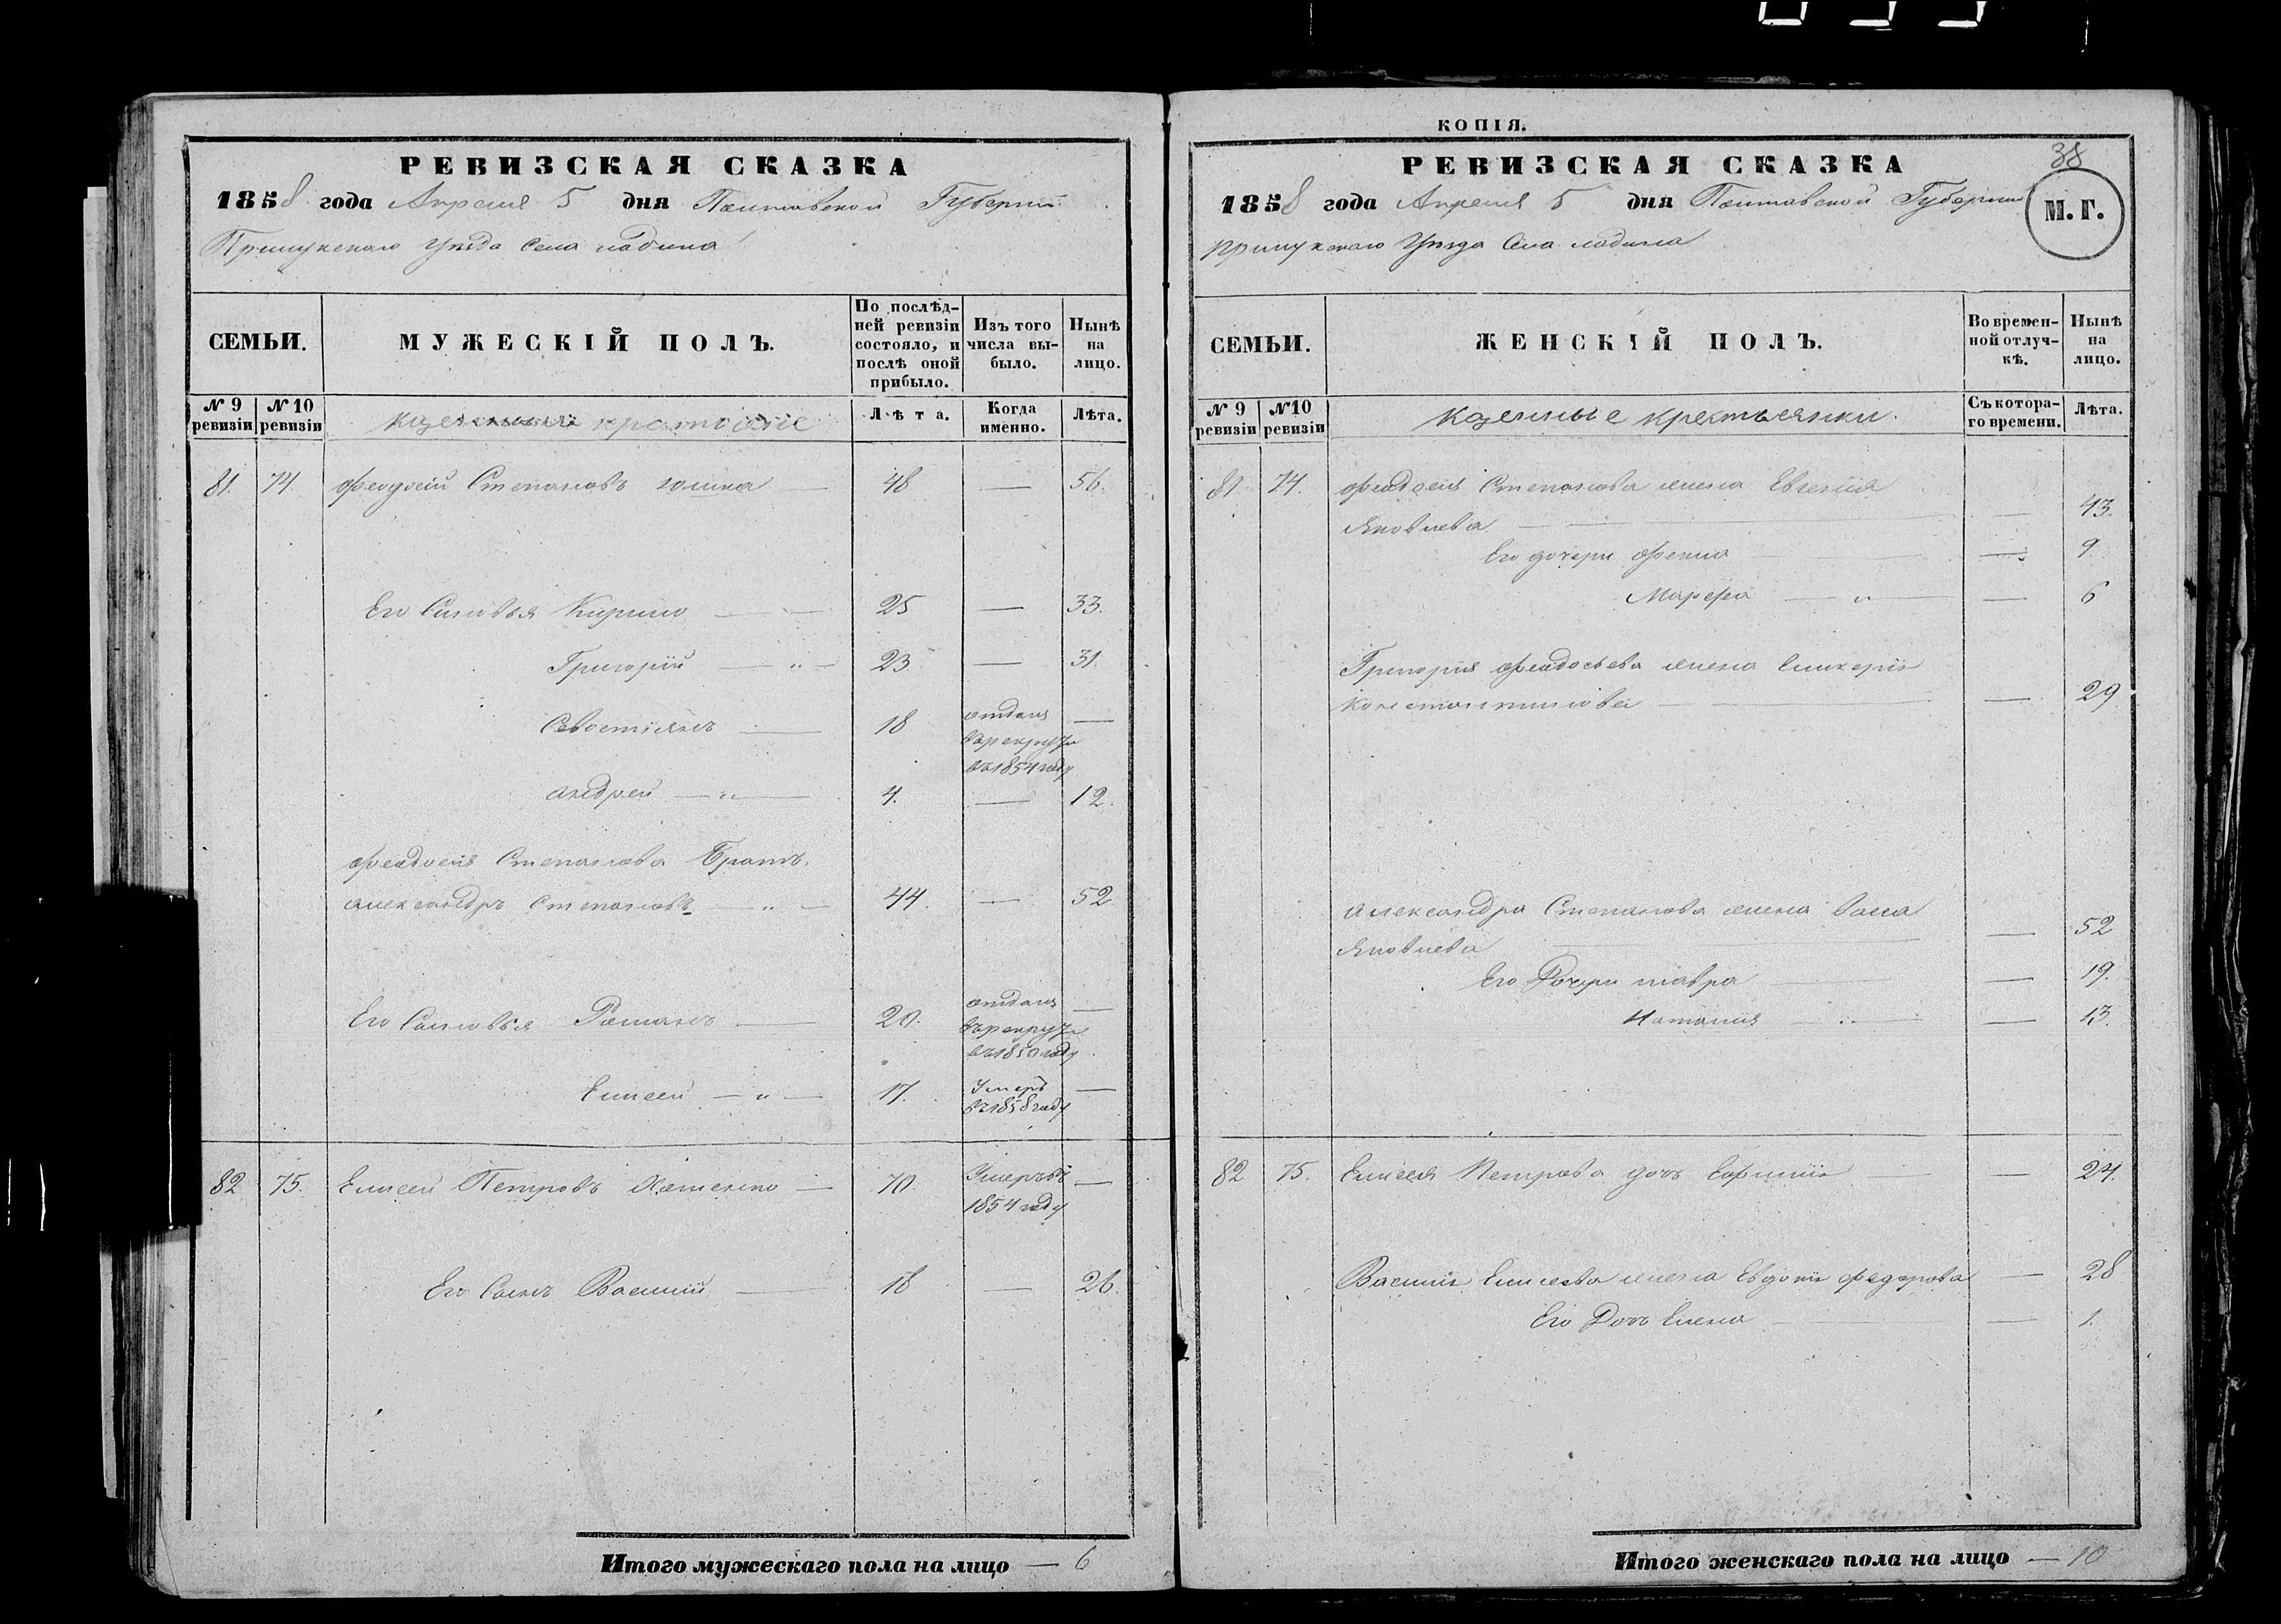 РЕВИЗСКАЯ СКАЗКА
1858 года Апреля 5 дня Полтавской Губернии
Прилукскаго Уезда Села ладина
СЕМЬИ.
МУЖЕСКІЙ ПОЛЪ.
По послѣд-
ней ревизіи
состояло, и
послѣ оной
прибыло.
Изъ того
числа вы-
было.
Нынѣ
на
лицо.
№ 9
ревизіи
№ 10
ревизіи
казенныи
Лѣта.
Когда
именно.
Лѣта.
81. 74. Феодосій Степановъ 48 — 56.
Его Сыновья Кирило — 25 — 33.
Григорій — " — 23. — 31.
Севостіянъ — 18 отданъ —
въ рекруты
въ 1854 году
андрей — " — 4. — 12.
Феодосія Степанова Братъ
александръ Степановъ — " — 44. — 52
Его Сыновья Романъ — 20. отданъ —
въ рекруты
въ 1850 году
Елисей — " — 17. Умеръ —
въ 1858 году
82 75. Елисей Петровъ — 70. Умеръ въ —
1854 году
Его Сынъ Василій — 18 — 26.
Итого мужескаго пола на лицо — 6
КОПІЯ.
38
РЕВИЗСКАЯ СКАЗКА
М. Г.
1858 года Апреля 5 дня Полтавской Губернии
прилукскаго Уезда Села ладина
СЕМЬИ.
ЖЕНСКІЙ ПОЛЪ.
Во времен-
ной отлуч-
кѣ.
Нынѣ
на
лицо.
№ 9
ревизіи
№ 10
ревизіи
казенные крестьянки.
Съ котора-
го времени.
Лѣта.
81. 74. Феодосія Степанова жена Евгенія
Яковлева — — 43.
Его дочери Фекла — — 9.
Марфа — " — — 6
Григорія Феодосьева жена Гликерія
Константинова — — 29.
Александра Степанова жена Васса
Яковлева — — 52
Его Дочери мавра — — 19.
Наталия — " — — 13.
82 75. Елисея Петрова дочь Ефимия — — 24.
Василія Елисеева жена Евдокія Федорова — 28
Его Дочь Елена — — 1.
Итого женскаго пола на лицо — 10